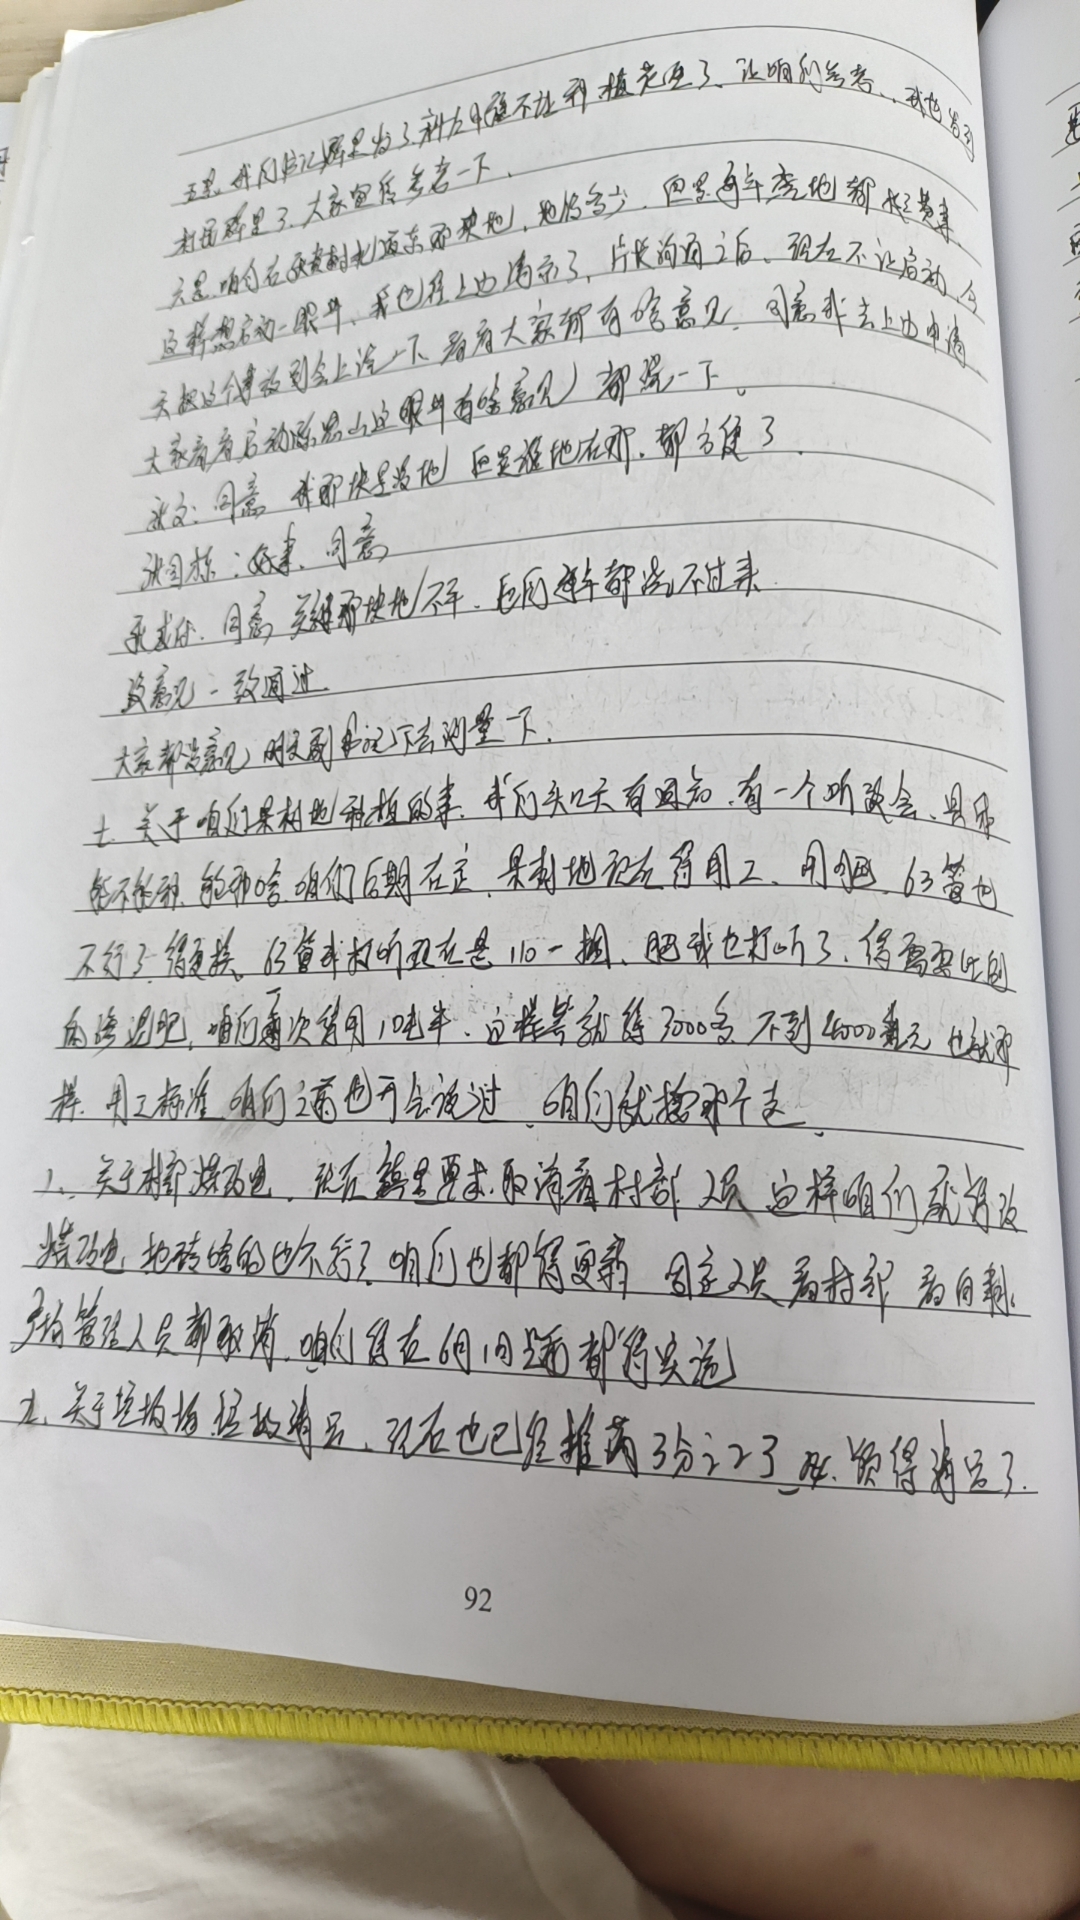 五是、我同书记群里发了、新 不让种植 了、让咱们参考、我也发到
村民群里了、大家宣传参考一下、
六是、咱们 村北 东那块地、地 多少、但是每年浇地都 费事、
这样想启动一眼井、我也往上边请示了、片长沟通之后、现在不让启动、今
天把这个事放到会上说一下 看看大家都有啥意见、同意我去上边申请
大家看看启动 这眼井有啥意见、都说一下。
张文：同意 我那块是没地 但是谁地在那、都方便了、
张国栋：好事、同意
同意 关键那块地不平、 每年都浇不过来、
没意见 一致通过、
大家都没意见、明天 书记下去测量一下、
七、关于咱们果树地种植的事、我们头几天有通知、有一个听证会、具体
能不能种、能种啥、咱们后期在定、果树地现在得用工、用肥、63管也
不行了、得更换。63管我打听现在是110一捆、肥我也打听了、得需要
肥、咱们每次得用10 、这样算就得3000多 不到4000 元 也就那
样、用工标准 咱们之前也开会说过、咱们就按那个走、
八、关于村部煤改电、现在镇里要求取消看村部人员 这样咱们就得改
煤改电、地砖啥的也不行了、咱们也都得更新 固定人员看村部 看
广场管理人员都取消、咱们得在6月1日 都得实施
九、关于垃圾场 垃圾清运、现在也已经堆满3分之2了 必须得清运了、
92